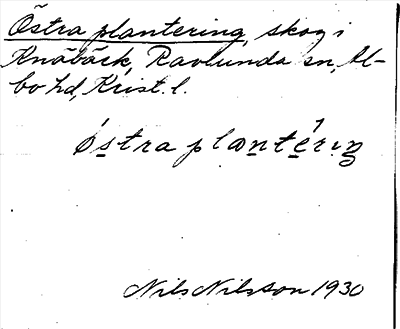 Östra plantering, skog i
Knäbäck, Ravlunda sn, Al-
bo hd, Krist. l.
östra plantériŋ
Nils Nilsson 1930